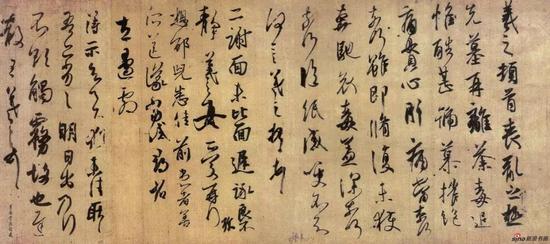 羲之頓首喪亂之極
先墓再離荼毒追
惟酷甚號慕摧絕
痛貫心肝痛當奈何
奈何雖即脩復未獲
奔馳哀毒益深奈何
奈何臨紙感哽不知
何言羲之頓首頓首
二謝面未比面遲詠良不
靜羲之女愛再拜
想邵兒悉佳前患者善
所送議當試尋省
左邊劇
得示知足下猶未佳耿耿
吾亦劣劣明日出乃行
不欲觸霧故也遲
散王羲之頓首
sina